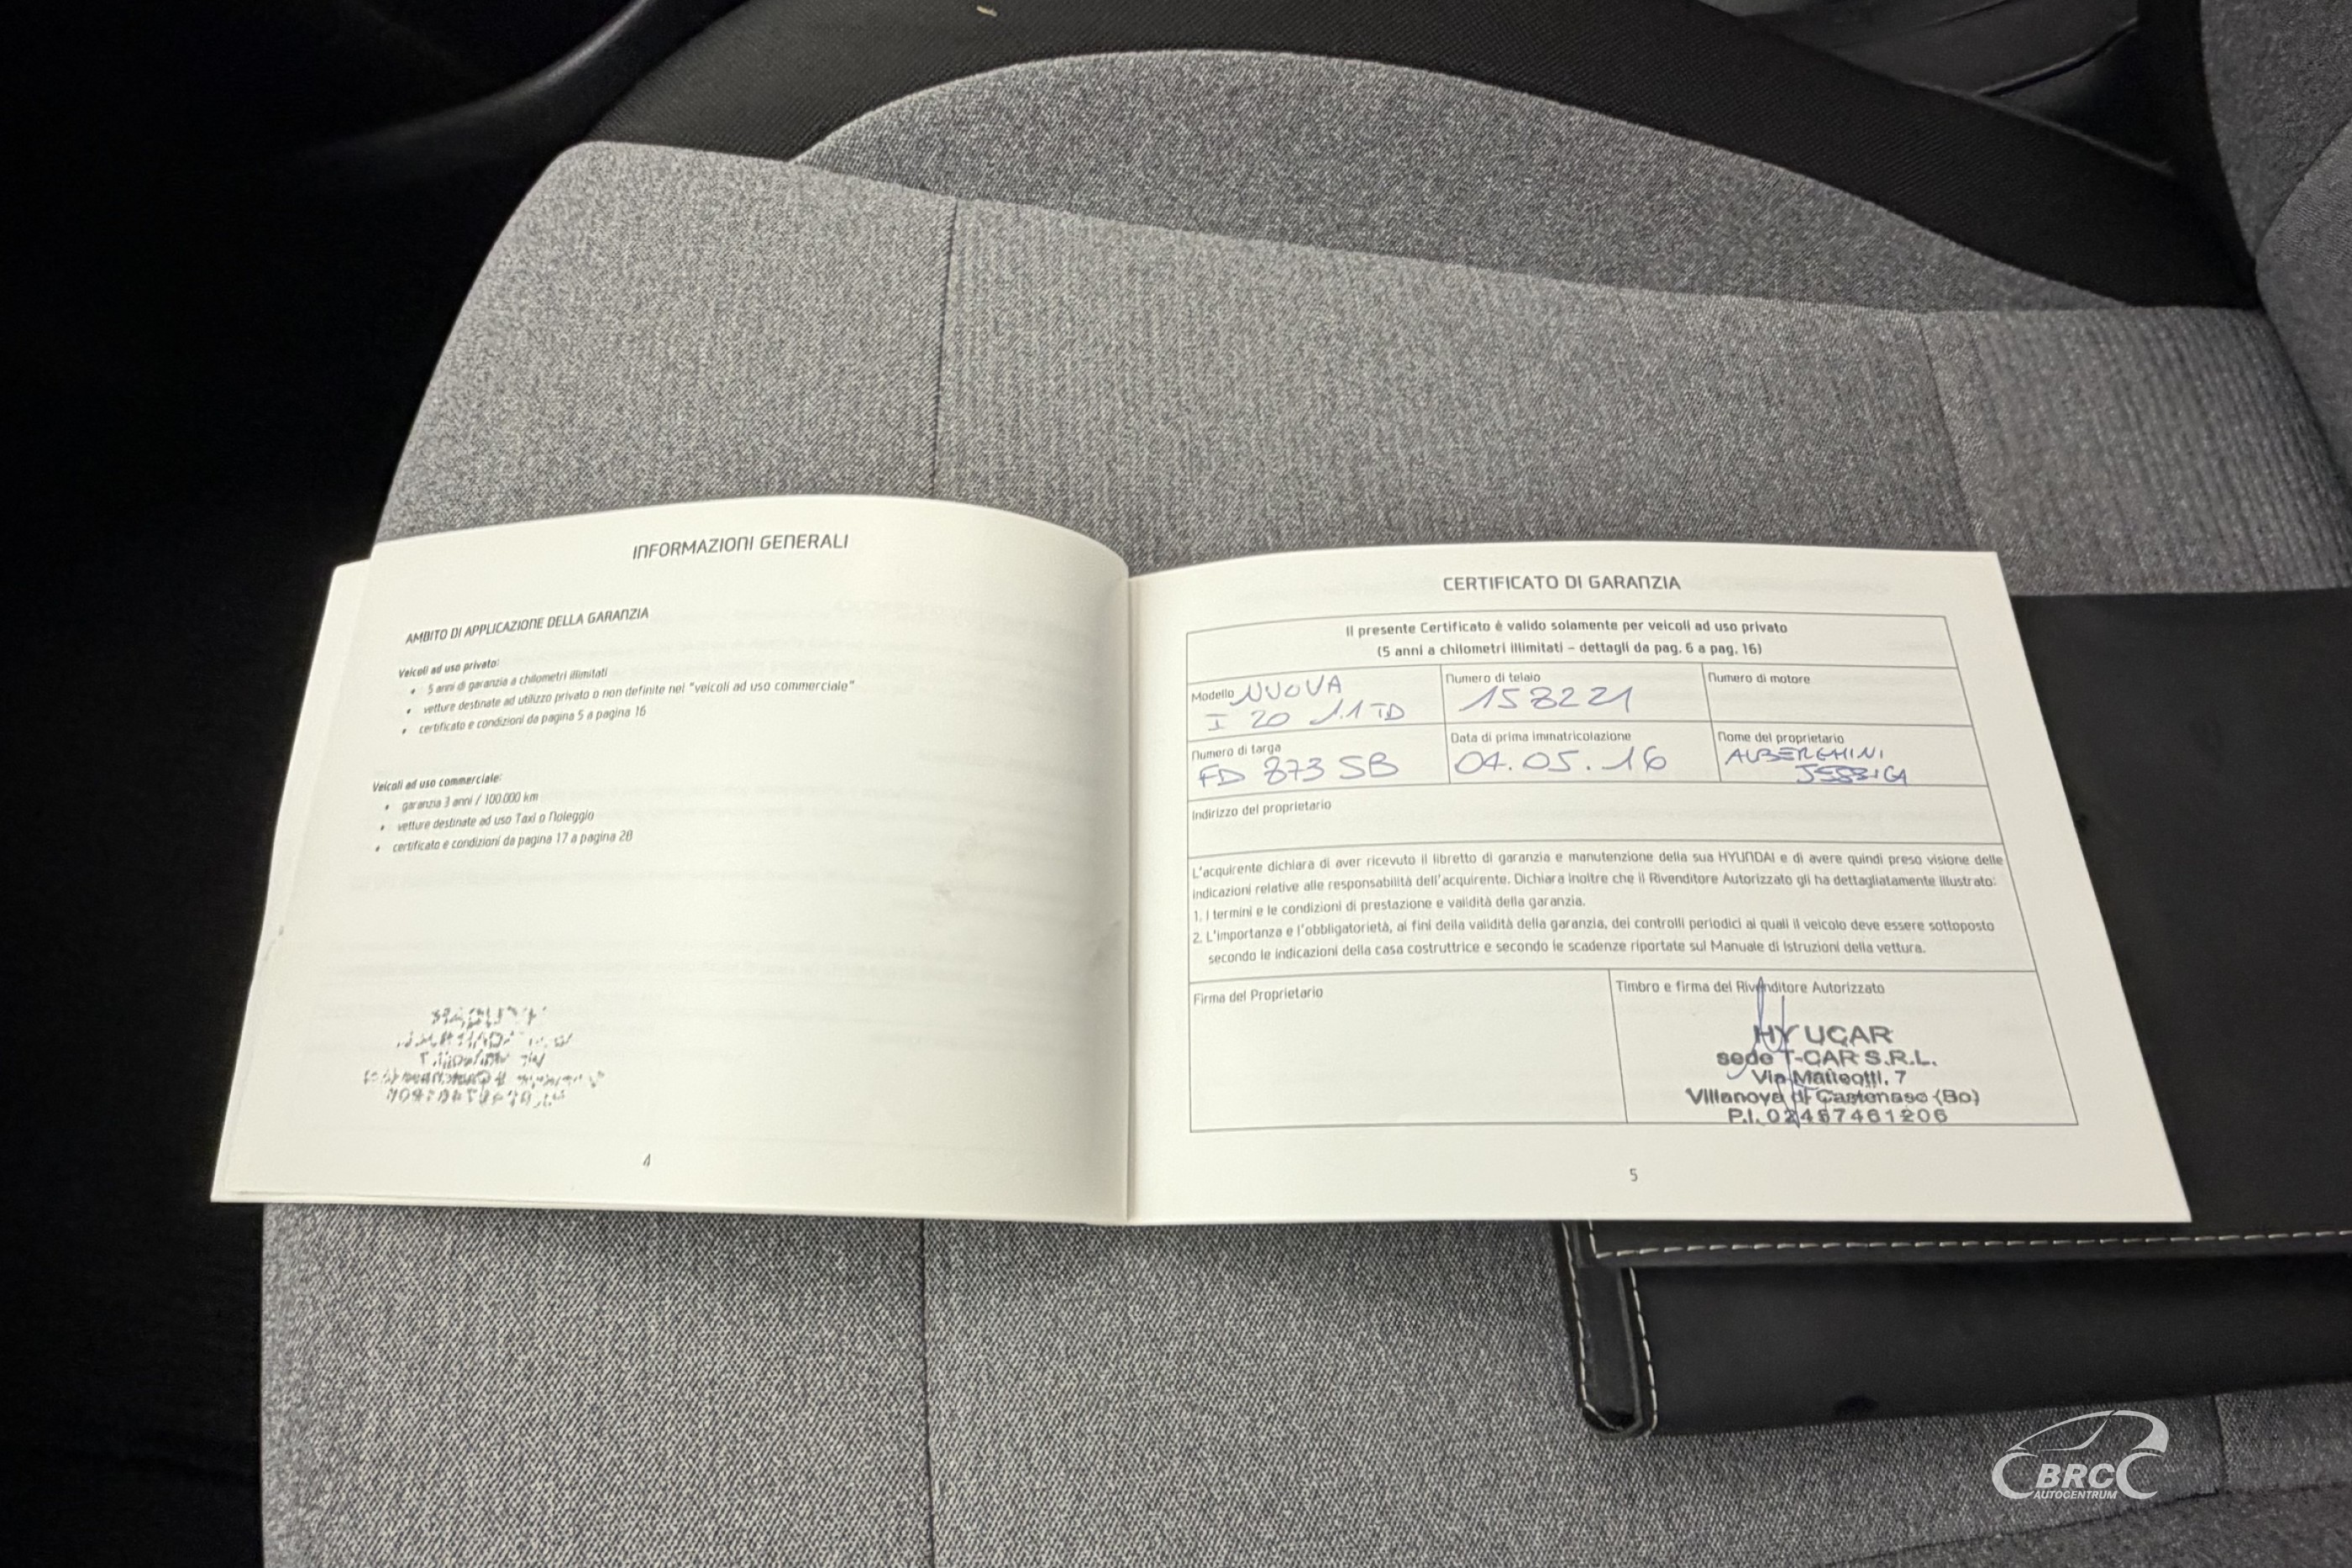 INFORMAZIONI GENERALI
AMBITO DI APPLICAZIONE DELLA GARANZIA
Veicoli ad uso privato:
• 5 anni di garanzia a chilometri illimitati
• vetture destinate ad utilizzo privato o non definite nei "veicoli ad uso commerciale"
• certificato e condizioni da pagina 5 a pagina 16
Veicoli ad uso commerciale:
• garanzia 3 anni / 100.000 km
• vetture destinate ad uso Taxi o Noleggio
• certificato e condizioni da pagina 17 a pagina 28
4
CERTIFICATO DI GARANZIA
Il presente Certificato è valido solamente per veicoli ad uso privato
(5 anni a chilometri illimitati – dettagli da pag. 6 a pag. 16)
Modello NUOVA
I 20 1.1 TD
Numero di telaio
158221
Numero di motore
Numero di targa
FD 873 SB
Data di prima immatricolazione
04.05.16
Nome del proprietario
ALBERGHINI
JESSICA
Indirizzo del proprietario
L'acquirente dichiara di aver ricevuto il libretto di garanzia e manutenzione della sua HYUNDAI e di avere quindi preso visione delle
indicazioni relative alle responsabilità dell'acquirente. Dichiara inoltre che il Rivenditore Autorizzato gli ha dettagliatamente illustrato:
1. I termini e le condizioni di prestazione e validità della garanzia.
2. L'importanza e l'obbligatorietà, ai fini della validità della garanzia, dei controlli periodici ai quali il veicolo deve essere sottoposto
secondo le indicazioni della casa costruttrice e secondo le scadenze riportate sul Manuale di Istruzioni della vettura.
Firma del Proprietario
Timbro e firma del Rivenditore Autorizzato
HY UCAR
sede T-CAR S.R.L.
Via Matteotti, 7
Villanova di Castenaso (Bo)
P.I. 02467461206
5
BRC
AUTOCENTRUM